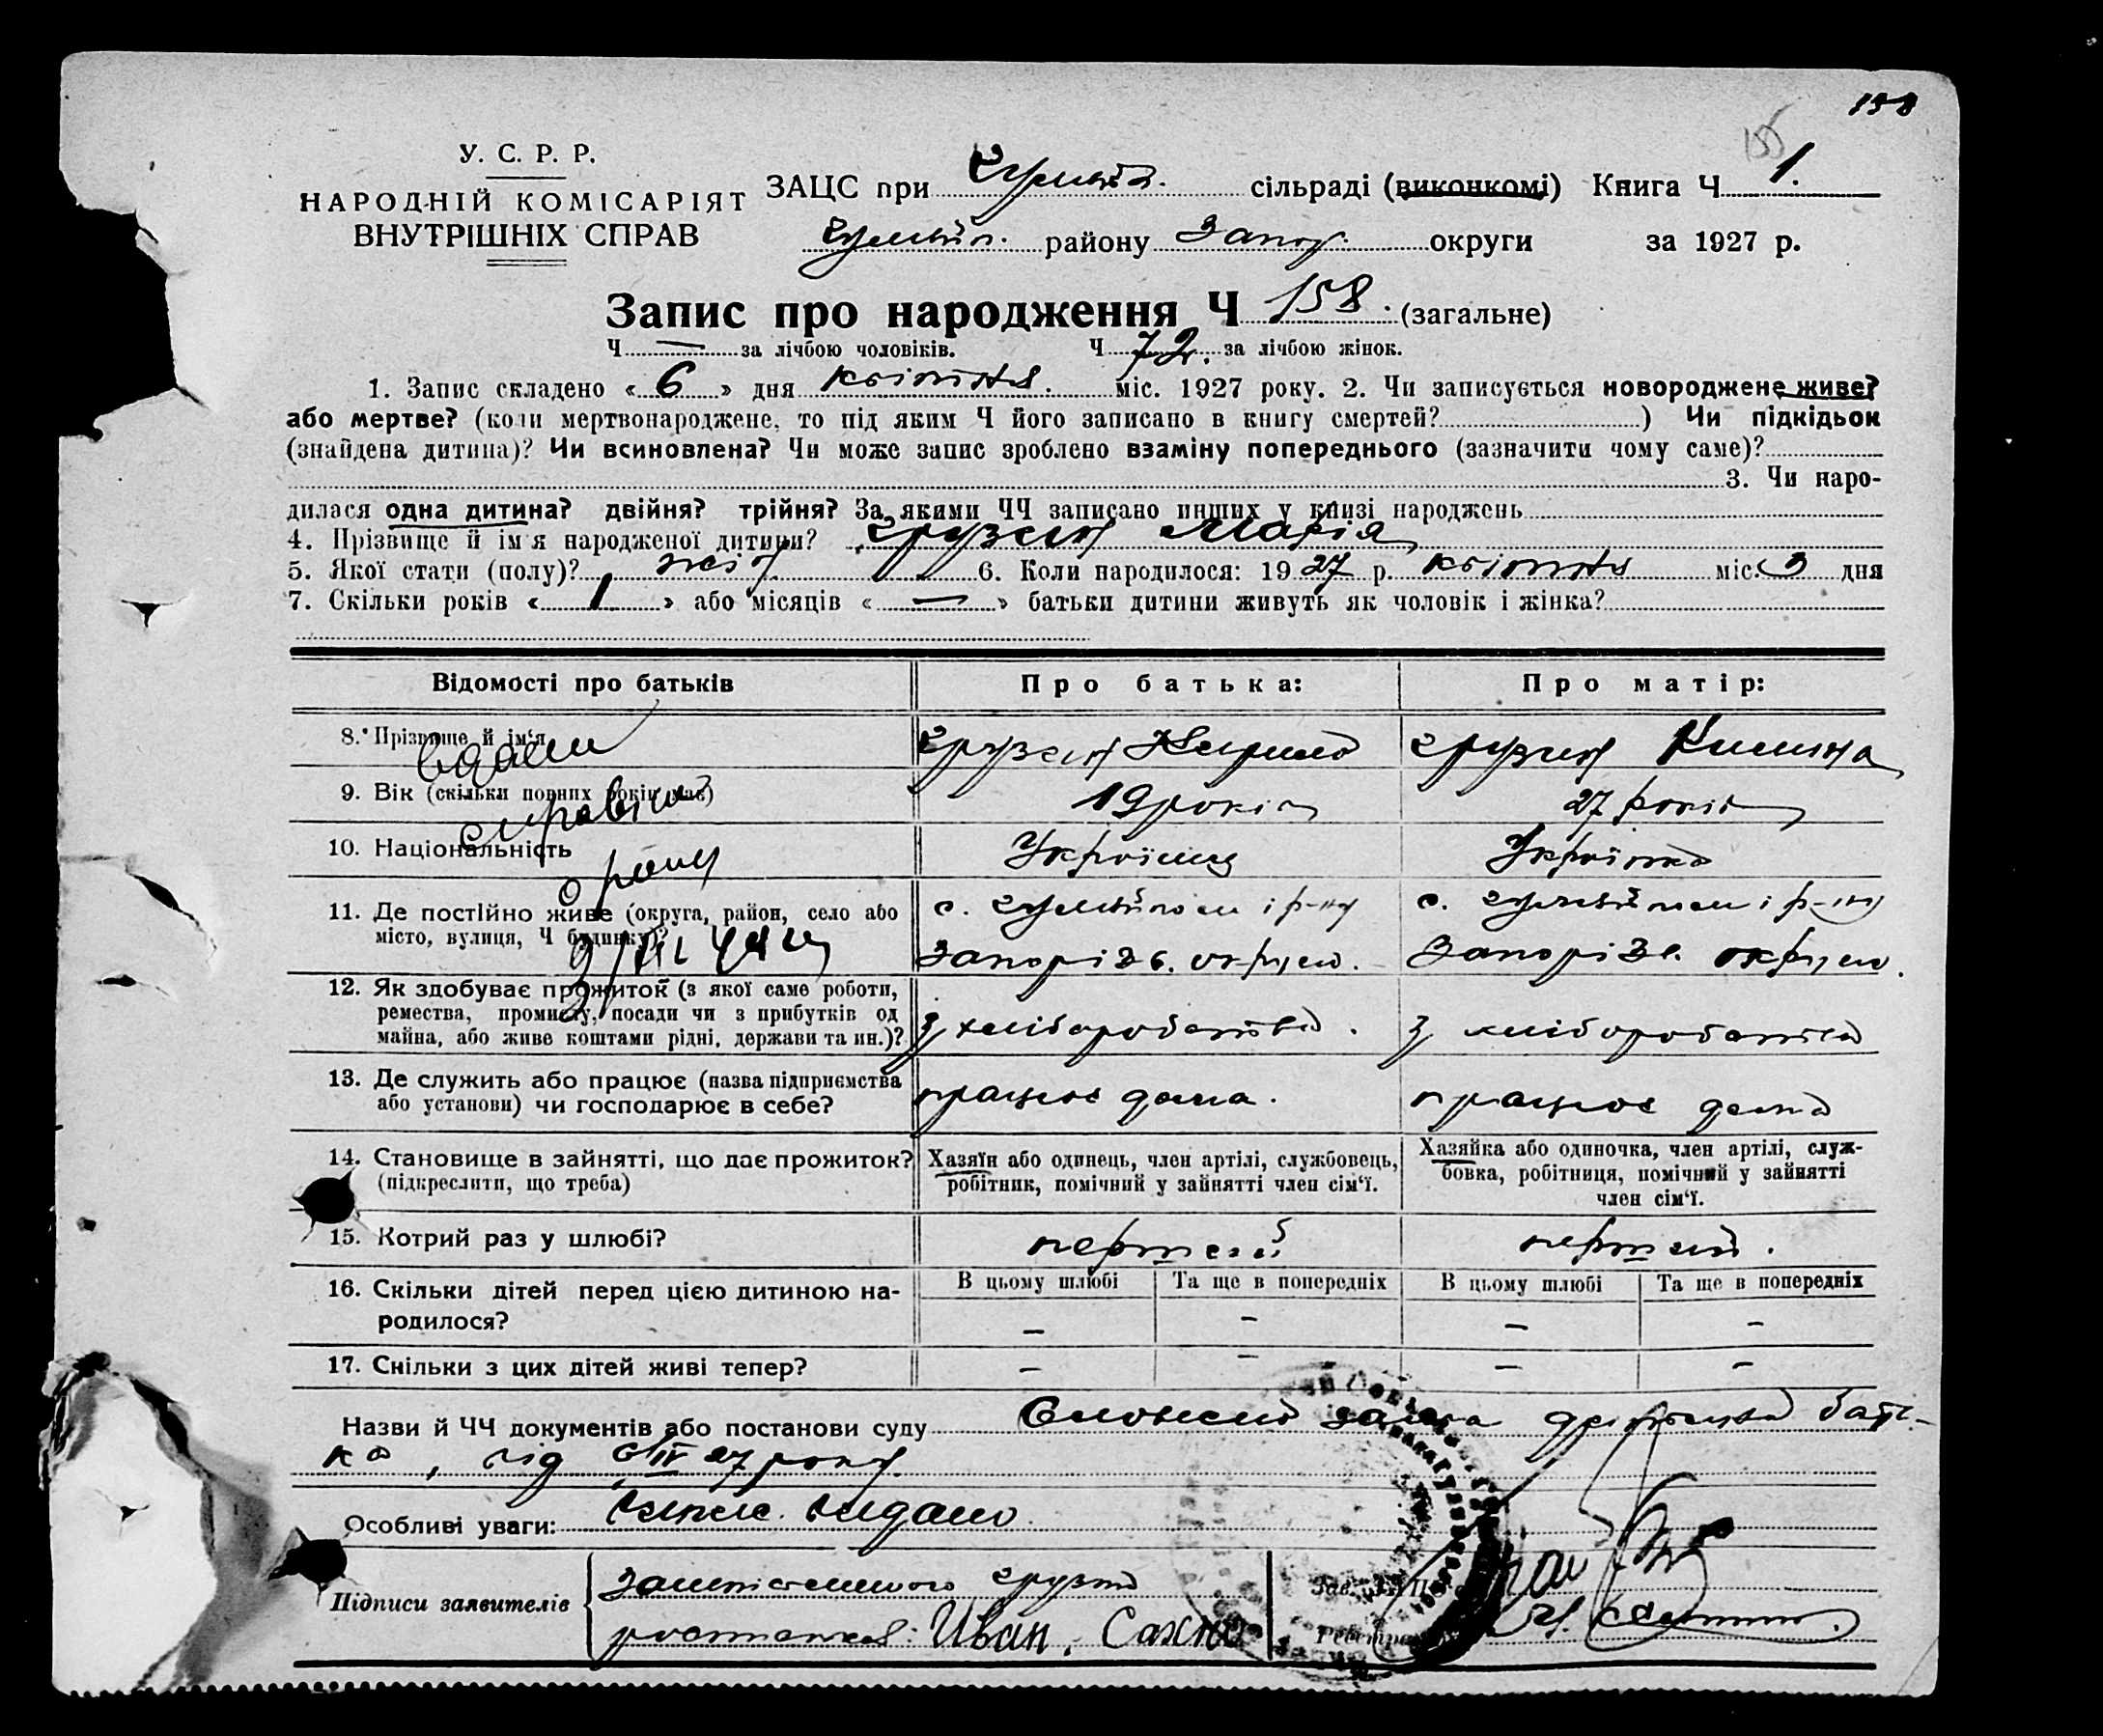 158
155
У. С. Р. Р.
НАРОДНІЙ КОМІСАРІЯТ
ВНУТРІШНІХ СПРАВ
ЗАЦС при Гуляйп. сільраді (виконкомі) Книга Ч 1.
Гуляйп. району Запор. округи за 1927 р.
Запис про народження Ч 158. (загальне)
Ч — за лічбою чоловіків. Ч 72. за лічбою жінок.
1. Запис складено « 6 » дня квітня міс. 1927 року. 2. Чи записується новороджене живе?
або мертве? (коли мертвонароджене, то під яким Ч його записано в книгу смертей? ) Чи підкідьок
(знайдена дитина)? Чи всиновлена? Чи може запис зроблено взаміну попереднього (зазначити чому саме)?
3. Чи наро-
дилася одна дитина? двійня? трійня? За якими ЧЧ записано инших у книзі народжень
4. Прізвище й ім'я народженої дитини? Грузин Марія
5. Якої стати (полу)? жін 6. Коли народилося: 19 27 р. квітня міс. 3 дня
7. Скільки років « 1 » або місяців « — » батьки дитини живуть як чоловік і жінка?
Відомості про батьків Про батька: Про матір:
8. Прізвище й ім'я Грузин Кирило Грузин
9. Вік (скільки повних років має) 19 років 27 років
10. Національність Українец Українка
11. Де постійно живе (округа, район, село або с. Гуляйполе і р-ну с. Гуляйполе і р-ну
місто, вулиця, Ч будинку)? Запорізь. округи. Запорізь. округи.
12. Як здобуває прожиток (з якої саме роботи,
ремества, промислу, посади чи з прибутків од
майна, або живе коштами рідні, держави та ин.)? З хліборобства. З хліборобства
13. Де служить або працює (назва підприємства
або установи) чи господарює в себе? працює дома. працює дома
14. Становище в зайнятті, що дає прожиток?
(підкреслити, що треба)
Хазяїн або одинець, член артілі, службовець,
робітник, помічний у зайнятті член сім'ї.
Хазяйка або одиночка, член артілі, служ-
бовка, робітниця, помічний у зайнятті
член сім'ї.
15. Котрий раз у шлюбі? перший перший.
16. Скільки дітей перед цією дитиною на-
родилося?
В цьому шлюбі Та ще в попередніх В цьому шлюбі Та ще в попередніх
— — — —
17. Скільки з цих дітей живі тепер? — — — —
Назви й ЧЧ документів або постанови суду Словесна заява бать-
ка, від 6/IV 27 року.
Особливі уваги: видано
Підписи заявителів Грузин
Иван. Сахно